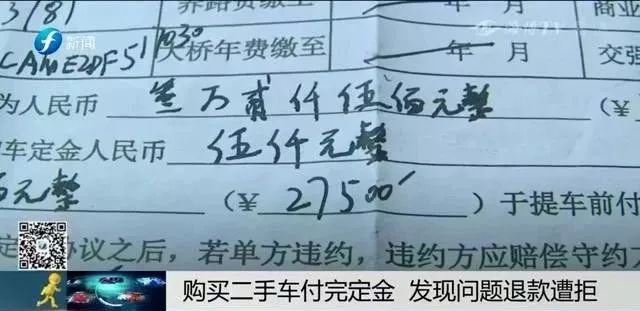 3/81 养路费缴至 年 月 商业
新闻 海博TV
大桥年费缴至 年 月 交强
为人民币 叁万贰仟伍佰元整 (¥
车定金人民币 伍仟元整
佰元整 (¥ 27500 ) 于提车前付
定 协议之后,若单方违约,违约方应赔偿守约方
购买二手车付完定金 发现问题退款遭拒